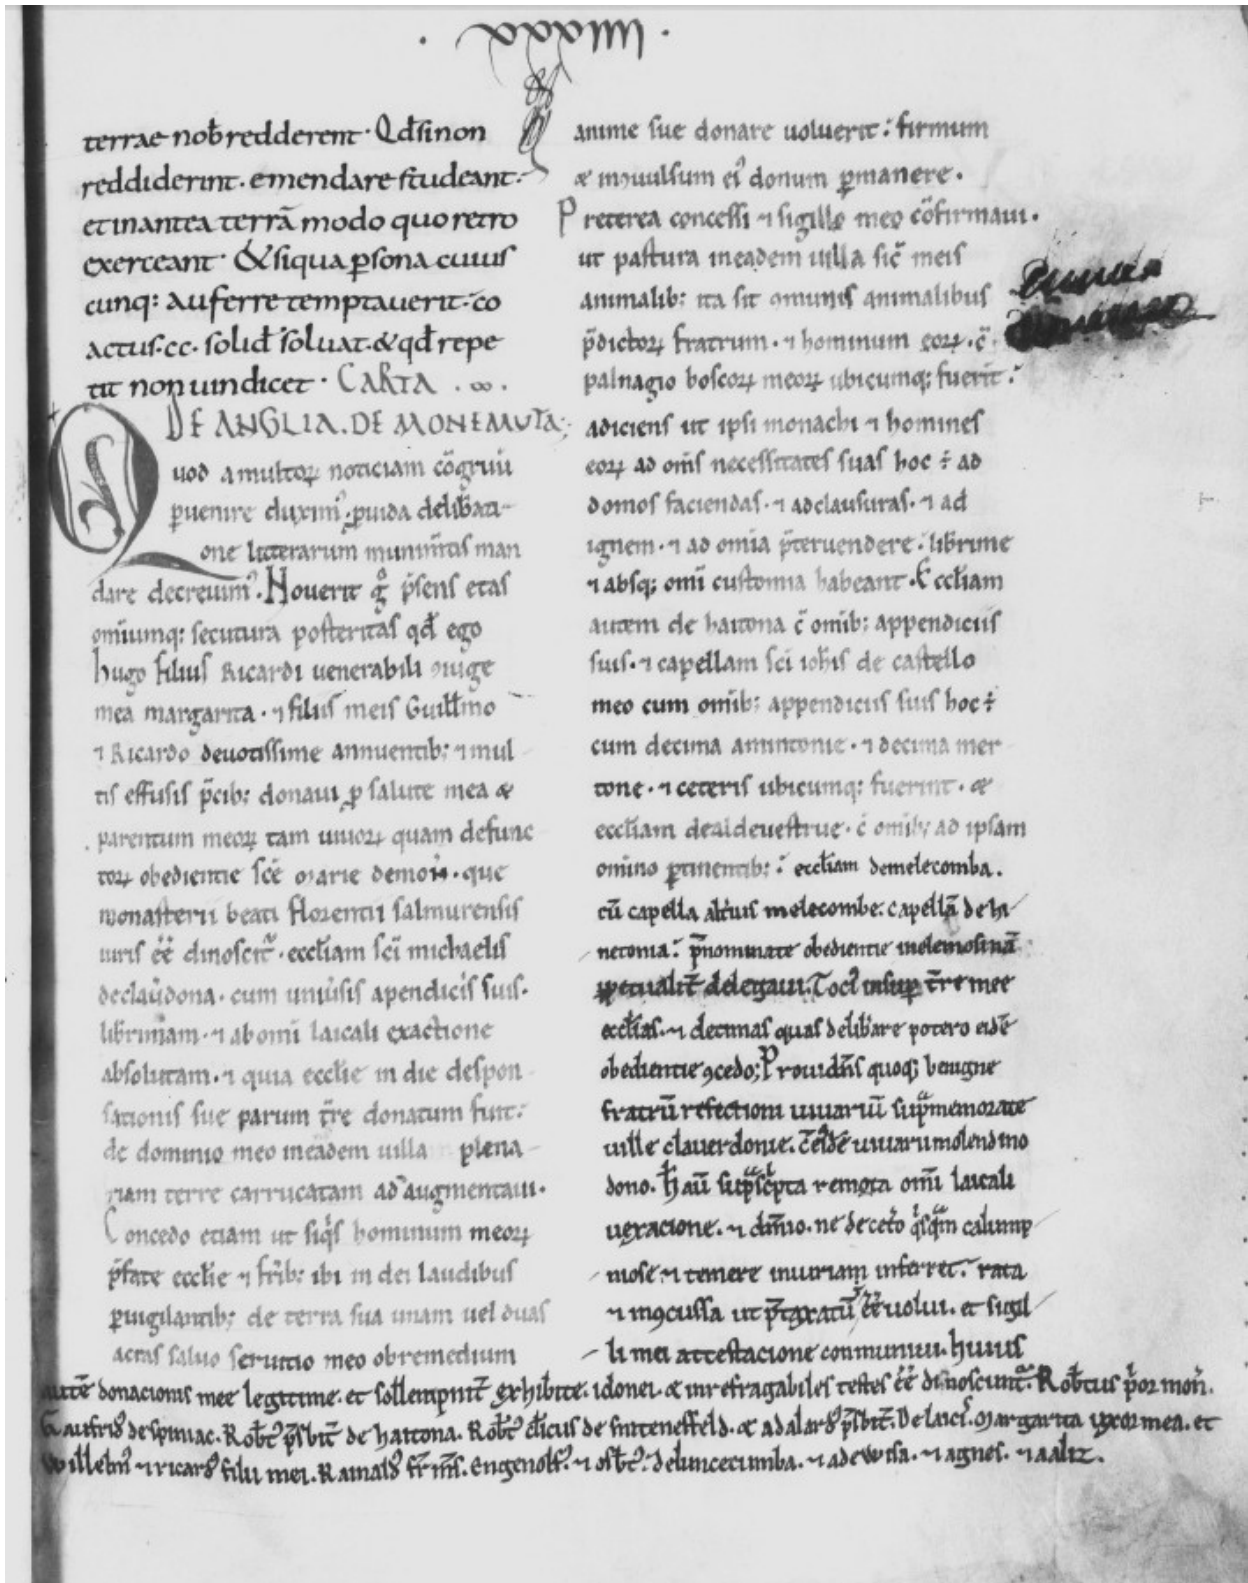 terrae nob̄ redderent · Qd̄ si non
reddiderint · emendare studeant ·
et inantea terrā modo quo retro
exerceant · & siqua p̱sona cuius
cunq; auferre temptauerit · co
actus · cc · solid̄ soluat · & qd̄ repe
tit non uindicet · CARTA . ∞ .
DE ANGLIA . DE MONEMUTA;
Quod a multoꝝ noticiam cōgruū
ꝑuenire duximꝰ · ꝓuida delib̄ati-
one litterarum munim̄tis man
dare decreuimꝰ · Nouerit gͦ p̄sens etas
omīumq; secutura posteritas qd̄ ego
hugo filius Ricardi uenerabili ꝯiuge
mea margarita · ⁊ filiis meis Guill̄mo
⁊ Ricardo deuotissime annuentib; ⁊ mul
tis effusis p̄cib; donaui ꝓ salute mea &
parentum meoꝝ tam uiuoꝝ quam defunc
toꝝ obedientie sc̄e marie de moń · que
monasterii beati florentii salmurensis
iuris ēē dinoscit᷑ · eccl̄iam sc̄i michaelis
de clau̓dona · cum uniu̓sis apendiciis suis ·
librimam · ⁊ ab omī laicali exactione
absolutam · ⁊ quia eccl̄ie in die despon
sationis sue parum t̄re donatum fuit ·
de dominio meo in eadem uilla plena
riam terre carrucatam ad augmentaui ·
Concedo etiam ut siq̓s hominum meoꝝ
p̄fate eccl̄ie ⁊ fr̄ib; ibi in dei laudibus
ꝑuigilantib; de terra sua unam uel duas
acras saluo seruitio meo ob remedium
anime sue donare uoluerit : firmum
& ꝯuulsum eiꝰ donum ꝑmanere ·
Preterea concessi ⁊ sigillo meo cōfirmaui ·
ut pastura in eadem uilla sic̄ meis
animalib; ita sit ꝯmunis animalibus
p̄dictoꝝ fratrum · ⁊ hominum eoꝝ · c̄
palnagio boscoꝝ meoꝝ ubicumq; fuerit :
adiciens ut ipsi monachi ⁊ homines
eoꝝ ad om̄s necessitates suas hoc ÷ ad
domos faciendas · ⁊ ad clausuras · ⁊ ad
ignem · ⁊ ad omīa p̄ter uendere : librime
⁊ absq; omī custumia habeant · Eccl̄iam
autem de haitona c̄ omīb; appendiciis
suis · ⁊ capellam sc̄i ioh̄is de castello
meo cum omīb; appendiciis suis hoc ÷
cum decima amintonie · ⁊ decima mer
tone · ⁊ ceteris ubicumq; fuerint · &
eccl̄iam de aldeuestrue · c̄ omīb; ad ipsam
omīno ꝑtinentib; : eccl̄iam de melecomba .
cū capella alt̓ius melecombe : capellā de hi
netonia : p̄nominate obedientie in elemosinā
ꝑpetualit̄ delegaui . Tociꝰ insuꝑ t̄re mee
eccl̄ias · ⁊ decimas quas delib̄are potero eidē
obedientie ꝯcedo; Prouidn̄s quoq; benigne
fratrū refectioni uiuariū sup̄memorate
uille clauerdonie . c̄ eidē uiuarii molendino
dono . h̄ aū sup̄sc̓pta remota omī laicali
uexacione . ⁊ dn̄io . ne de cet̓o q̓sq̄m calump
niose ⁊ temere iniuriam inferret : rata
⁊ inꝯcussa ut p̄taxatū ēē uolui . et sigil
li mei attestacione conmuniui . huius
autē donacionis mee legitime . et sollempnit̄ exhibite . idonei . & inrefragabiles testes ēē dinoscunt᷑ . Rob̄tus p̓or mon̄ .
Gaufridꝰ de spiniac . Rob̄tꝰ p̄sbit̄ de haitona . Rob̄tꝰ cl̄icus de smiteneffeld . & adalardꝰ p̄sbit̄ . De laicis . Margarita uxor mea . et
Willelmꝰ ⁊ ricardꝰ filii mei . Rainaldꝰ fr̄ mš . Engenolfꝰ . ⁊ osb̄tꝰ . de luncecumba . ⁊ adewisa . ⁊ agnes . ⁊ aaliz .